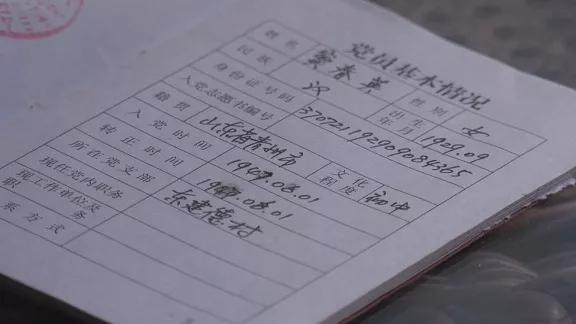 党员基本情况
姓名 窦春英 性别 女
民族 汉 出生年月 1929.09
身份证号码 370721192909084365
入党志愿书编号
籍贯 山东省青州市 文化程度 初中
入党时间 1947.08.01
转正时间 1947.08.01
所在党支部 东建德村
现任党内职务
现工作单位及务
职
系方式